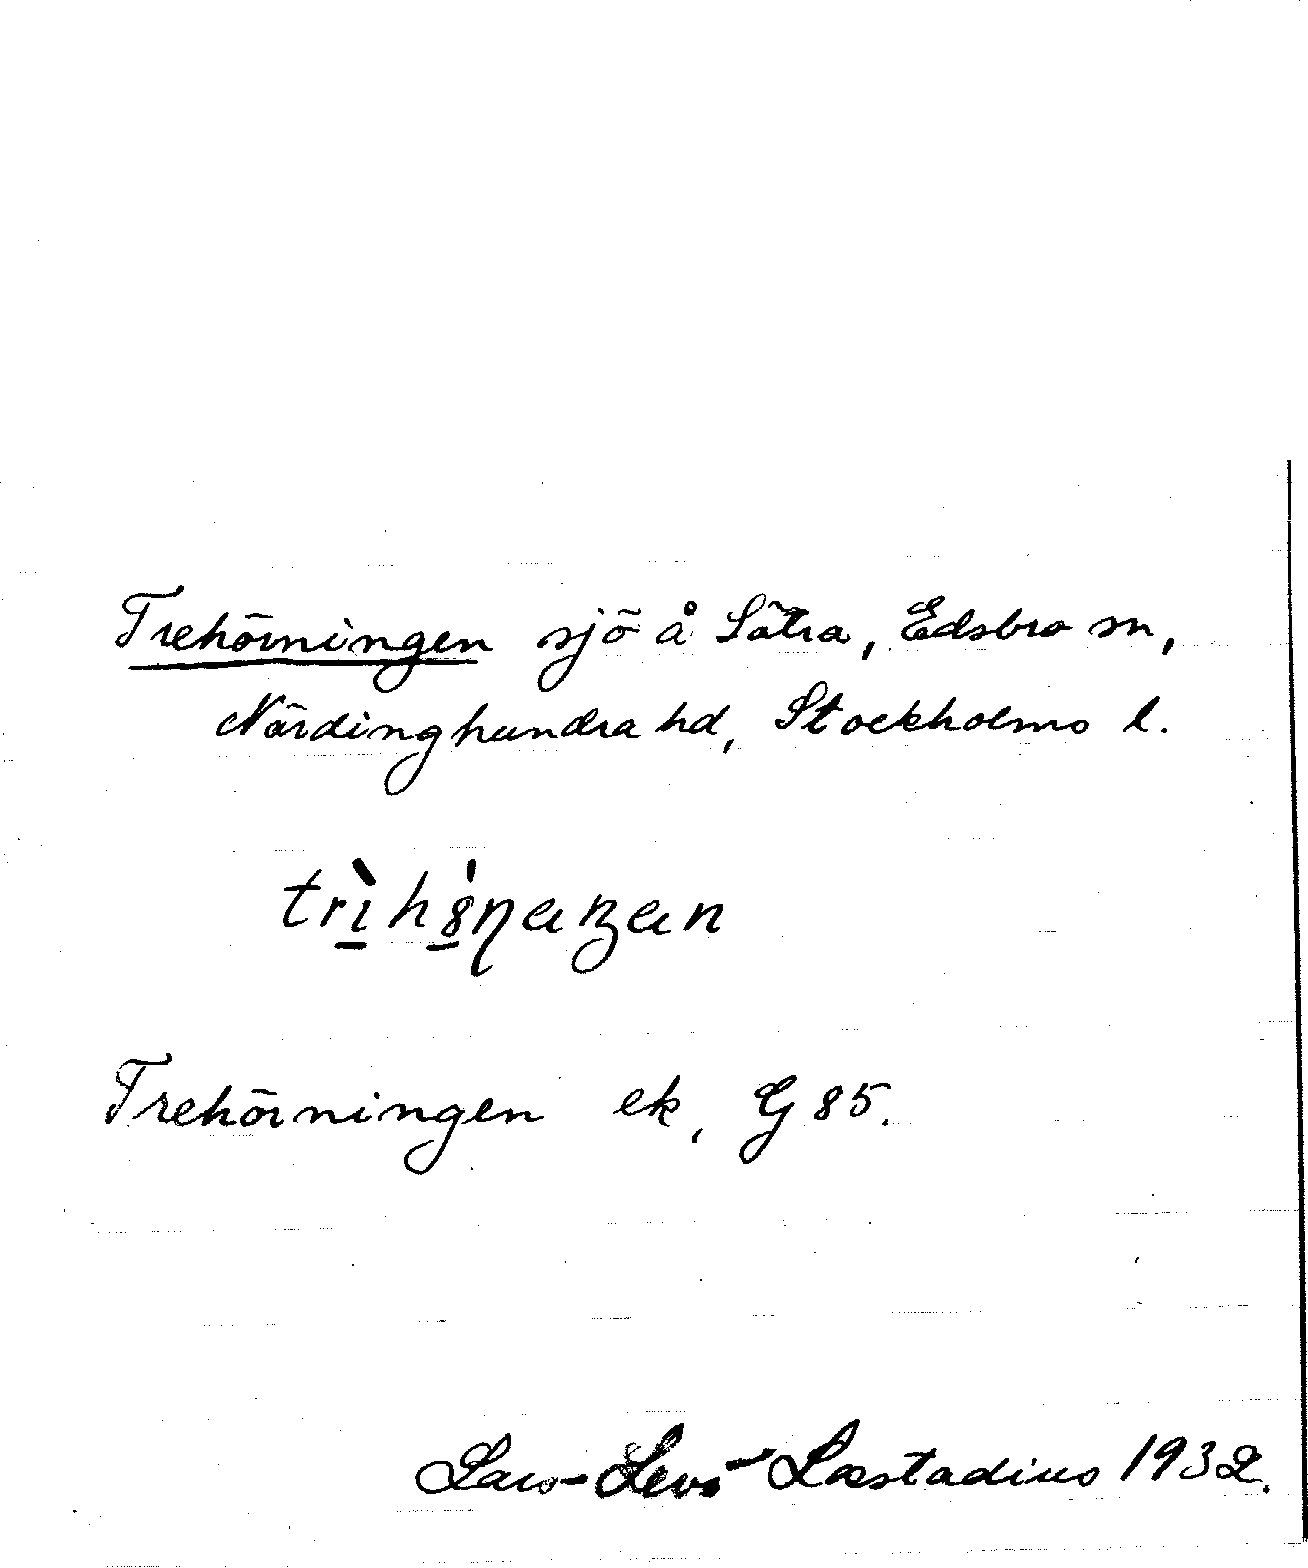 Trehörningen sjö å Sätra, Edsbro sn,
Närdinghundra hd, Stockholms l.
trìhȣ́ṇaŋan
Trehörningen ek, G 85.
Lars-Levi Læstadius 1932.